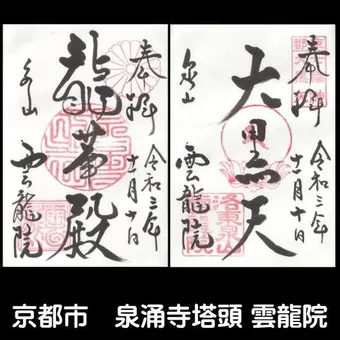 奉拝
令和三年
十一月十日
大黒天
泉山
雲龍院
洛東泉山
奉拝
令和三年
十一月十日
龍華殿
泉山
雲龍院
京都市　泉涌寺塔頭 雲龍院